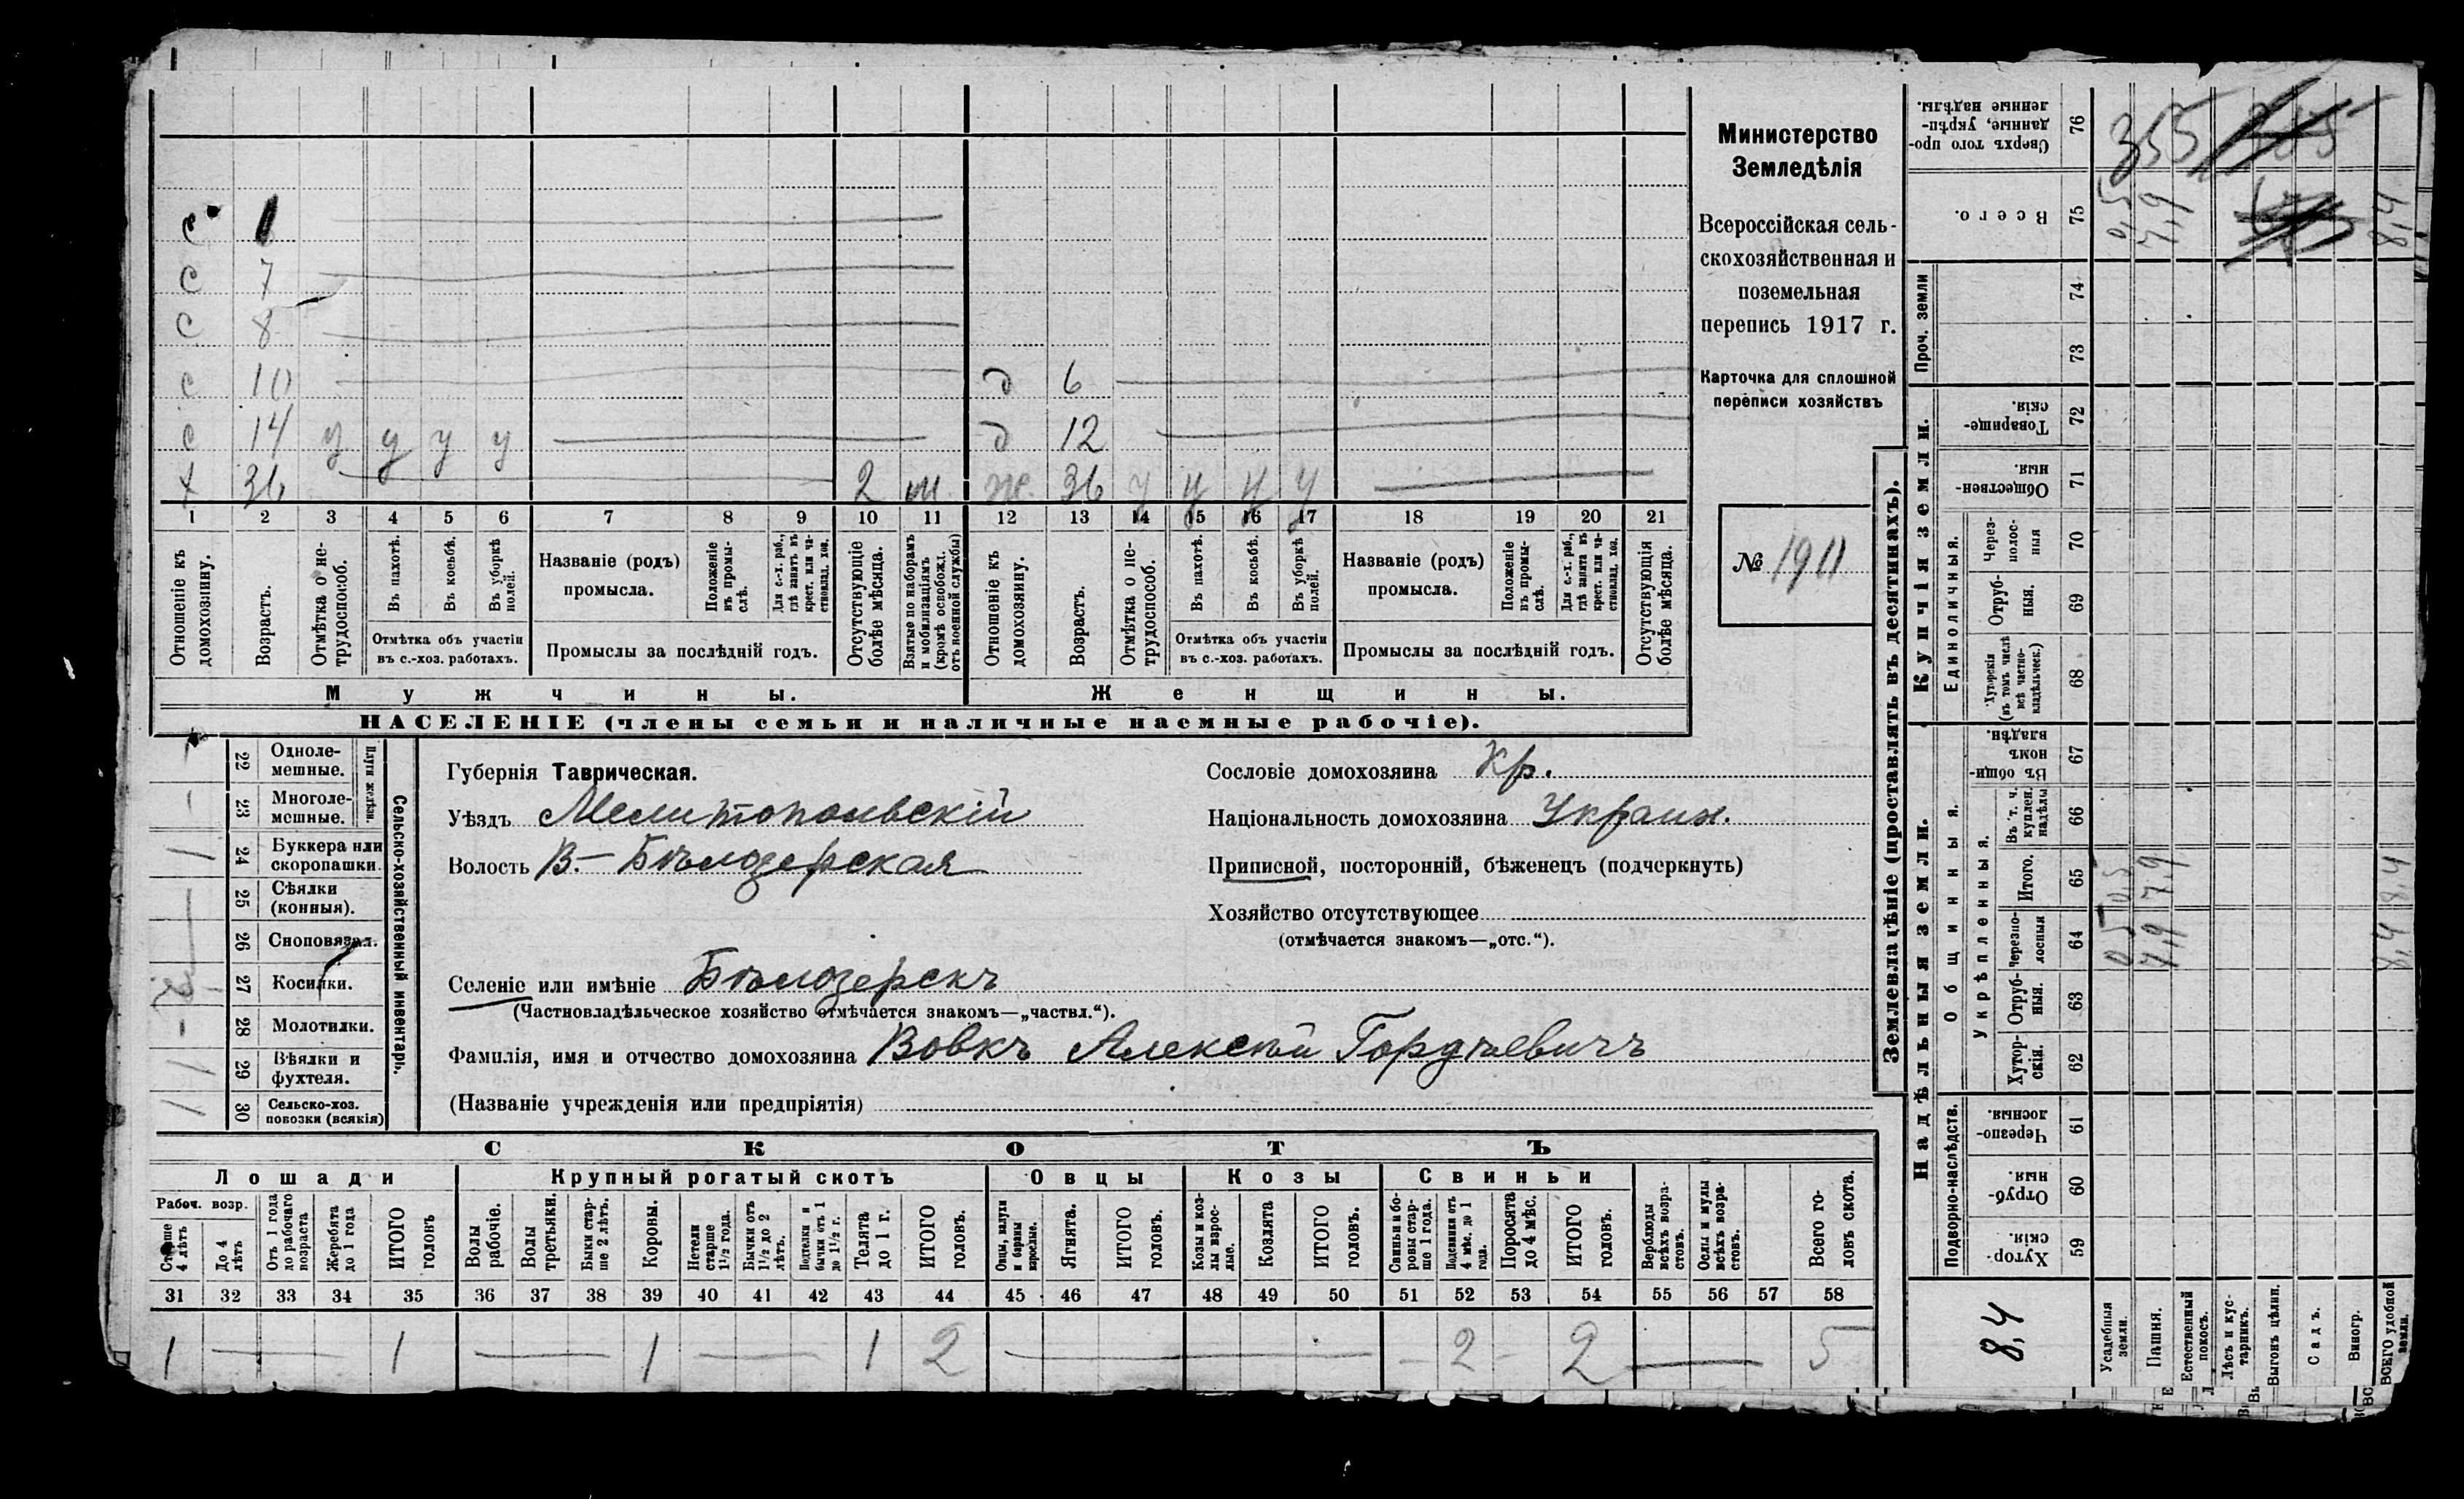 Министерство
Земледѣлія
Всероссійская сель-
скохозяйственная и
поземельная
перепись 1917 г.
Карточка для сплошной
переписи хозяйствъ
№ 1911
с 1
с 7
с 8
с 10 д 6
с 14 у у у у д 12
х 36 2 м ж. 36 у у у у
1 2 3 4 5 6 7 8 9 10 11 12 13 14 15 16 17 18 19 20 21
Отношеніе къ домохозяину.
Возрастъ.
Отмѣтка о не-трудоспособ.
Въ пахотѣ.
Въ косьбѣ.
Въ уборкѣ полей.
Отмѣтка объ участіи
въ с.-хоз. работахъ.
Названіе (родъ)
промысла.
Положеніе въ промы-слѣ.
Для с.-х. раб., гдѣ занятъ въ крест. или ча-стновлад. хоз.
Промыслы за послѣдній годъ.
Отсутствующіе болѣе мѣсяца.
Взятые по наборамъ и мобилизаціямъ (кромѣ освобожд. отъ военной службы)
Отношеніе къ домохозяину.
Возрастъ.
Отмѣтка о не-трудоспособ.
Въ пахотѣ.
Въ косьбѣ.
Въ уборкѣ полей.
Отмѣтка объ участіи
въ с.-хоз. работахъ.
Названіе (родъ)
промысла.
Положеніе въ промы-слѣ.
Для с.-х. раб., гдѣ занятъ въ крест. или ча-стновлад. хоз.
Промыслы за послѣдній годъ.
Отсутствующія болѣе мѣсяца.
Мужчины. Женщины.
НАСЕЛЕНІЕ (члены семьи и наличные наемные рабочіе).
Сельско-хозяйственный инвентарь.
Плуги желѣзн.
22 Одноле-мешные. —
23 Многоле-мешные. —
24 Буккера или скоропашки. 1
25 Сѣялки (конныя).
26 Сноповязал.
27 Косилки.
28 Молотилки. —
29 Вѣялки и фухтеля. 1
30 Сельско-хоз. повозки (всякія) 1
Губернія Таврическая.
Уѣздъ Мелитопольскій
Волость В-Бѣлозерская
Сословіе домохозяина Кр.
Національность домохозяина Украин.
Приписной, посторонній, бѣженецъ (подчеркнуть)
Хозяйство отсутствующее
(отмѣчается знакомъ—„отс.“).
Селеніе или имѣніе Бѣлозерскъ
(Частновладѣльческое хозяйство отмѣчается знакомъ—„частвл.“).
Фамилія, имя и отчество домохозяина Вовкъ Алексѣй Гордѣевичъ
(Названіе учрежденія или предпріятія)
СКОТЪ
Лошади Крупный рогатый скотъ Овцы Козы Свиньи
Рабоч. возр.
Старше 4 лѣтъ
До 4 лѣтъ
Отъ 1 года до рабочаго возраста
Жеребята до 1 года
ИТОГО головъ
Волы рабочіе.
Волы третьяки.
Быки стар-ше 2 лѣтъ.
Коровы.
Нетели старше 1½ года.
Бычки отъ 1½ до 2 лѣтъ.
Подтелки и бычки отъ 1 до 1½ г.
Телята до 1 г.
ИТОГО головъ.
Овцы, валухи и бараны взрослые.
Ягнята.
ИТОГО головъ.
Козы и коз-лы взрос-лые.
Козлята
ИТОГО головъ.
Свиньи и бо-ровы стар-ше 1 года.
Подсвинки отъ 4 мѣс. до 1 года.
Поросята до 4 мѣс.
ИТОГО головъ.
Верблюды всѣхъ возра-стовъ.
Ослы и мулы всѣхъ возра-стовъ.
Всего го-ловъ скота.
31 32 33 34 35 36 37 38 39 40 41 42 43 44 45 46 47 48 49 50 51 52 53 54 55 56 57 58
1 — 1 — 1 — 1 2 — — 2 — 2 — 5
Землевладѣніе (проставлять въ десятинахъ).
Купчія земли.
Надѣльныя земли.
Сверхъ того про-данные, укрѣп-ленные надѣлы. 76 355
Всего. 75 0,5 7,9 8,4
Проч. земли 74 73
Товарище-скія. 72
Обществен-ныя 71
Единоличныя.
Через-полос-ныя 70
Отруб-ныя. 69
Хуторскія (въ томъ числѣ всѣ частно-владѣльческ.) 68
Общинныя.
Въ общи-номъ владѣн. 67
Укрѣпленныя.
Въ т. ч. куплен. надѣлы 66
Итого. 65 0,5 7,9 8,4
Черезпо-лосныя 64 0,5 7,9 8,4
Отруб-ныя. 63
Хутор-скія. 62
Подворно-наслѣдств.
Черезпо-лосныя. 61
Отруб-ныя. 60
Хутор-скія 59
8,4
Усадебныя земли.
Пашня.
Естественный покосъ.
Лѣсъ и кус-тарникъ.
Выгонъ цѣлин.
Садъ.
Виногр.
ВСЕГО удобной земли.